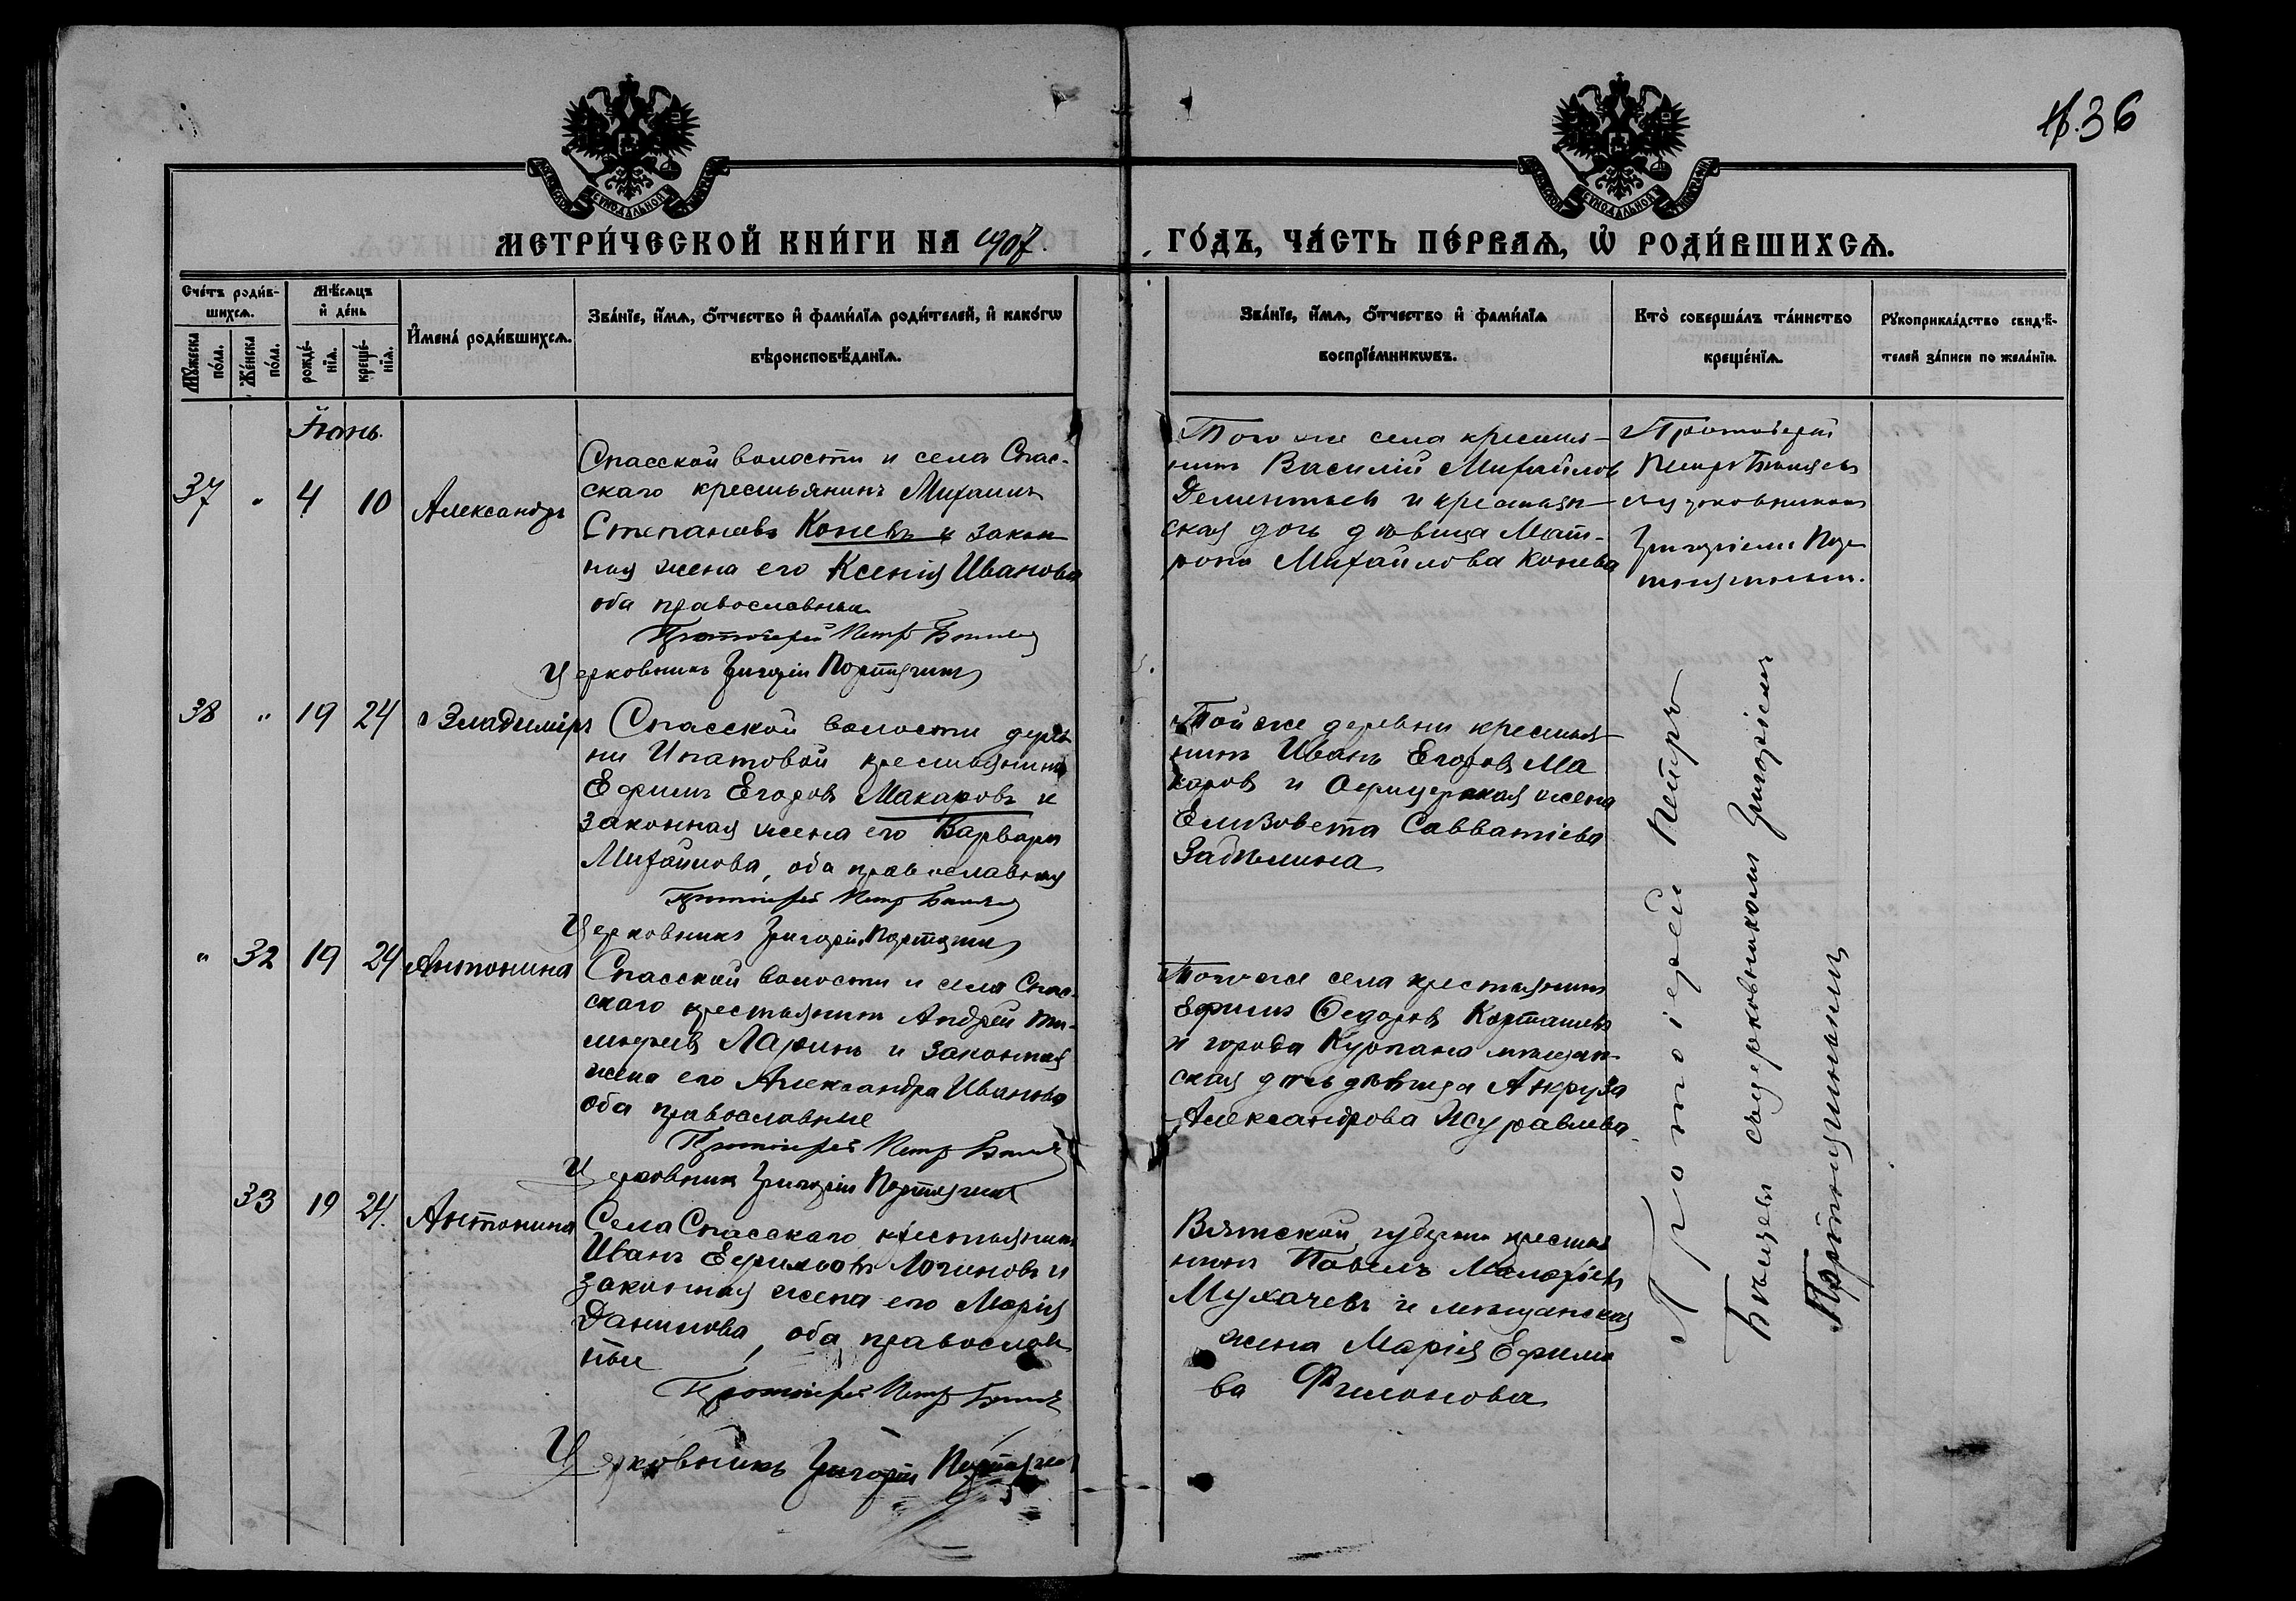 36
МЕТРИ́ЧЕСКОЙ КНИ́ГИ НА 1907.
ГО́ДЪ, ЧА́СТЬ ПЕ́РВАѦ, Ѡ҆ РОДИ́ВШИХСѦ.
Сче́тъ роди́в-
шихсѧ.
Мѣ́сѧцъ
и҆ де́нь
Мꙋ́жеска по́ла.
Же́нска по́ла.
рожде́-
нїѧ.
креще́-
нїѧ.
И҆мена̀ роди́вшихсѧ.
Зва́нїе, и҆́мѧ, ѻ҆́тчество и҆ фами́лїѧ роди́телей, и҆ како́гѡ
вѣроисповѣ́данїѧ.
Зва́нїе, и҆́мѧ, ѻ҆́тчество и҆ фами́лїѧ
воспрїе́мникѡвъ.
Кто̀ соверша́лъ та́инство
креще́нїѧ.
Рꙋкоприкла́дство свидѣ́-
телей за́писи по жела́нїю.
Іюнь.
37 " 4 10 Александръ
Спасской волости и села Спас-
скаго крестьянинъ Михаилъ
Степановъ Коневъ и закон
ная жена его Ксенія Иванова
оба православные
Протоіерей Петръ
Церковникъ Григорій
Того же села крестья-
нинъ Василій Михайловъ
Дементьевъ и крестьян-
ская дочь дѣвица Мат-
рона Михайлова Конева
Протоіерей
Петръ
съ церковникомъ
Григоріемъ
38 " 19 24 Владиміръ
Спасской волости дерев
ни Ипатовой крестьянинъ
Ефимъ Егоровъ Макаровъ и
законная жена его Варвара
Михайлова, оба православные
Протоіерей Петръ
Церковникъ Григорій
Той же деревни крестья-
нинъ Иванъ Егоровъ Ма
каровъ и Офицерская жена
Елизовета Савватіева
" 32 19 24 Антонина
Спасской волости и села Спас-
скаго крестьянинъ Андрей Ти-
Ларинъ и законная
жена его Александра Иванова
оба православные
Протоіерей Петръ
Церковникъ Григорій
Того же села крестьянинъ
Ефимъ Федоровъ Карташевъ
и города Кургана мещан-
ская дочь дѣвица
Александрова Журавлева
33 19 24. Антонина
Села Спасскаго крестьянинъ
Иванъ Ефимовъ Логиновъ и
законная жена его Марія
Данилова, оба православ
ные
Протоіерей Петръ
Церковникъ Григорій
Вятской губерніи крестья
нинъ Павелъ
Мухачевъ и мещанская
жена Марія Ефимо
ва Филонова
Протоіерей Петръ
съ церковникомъ Григоріемъ